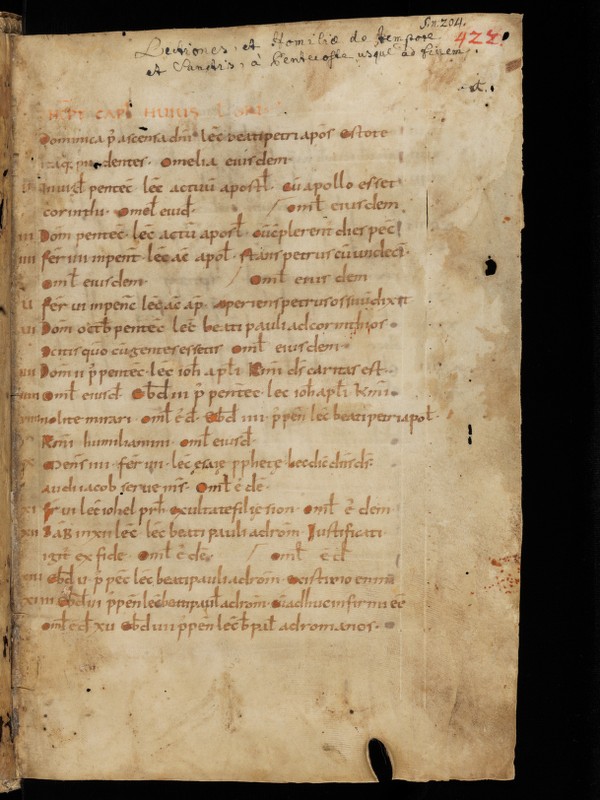 S. n. 204.
422.
Lectiones, et Homiliæ de tempore
et Sanctis, à Pentecoste usque ad finem
INCPT CAPL HUIUS
Dominica p̄ ascensa dn̄i lec̄ beati petri apos̄ Estote
itaq; prudentes. Omelia eiusdem
pentec̄ lec̄ actuū apost̄l. Cū apollo esset
corinthi. Omel̄ eiusd̄. Omīl eiusdem
Dom̄ pentec̄. lec̄ actū apost̄. Cūcōplerent̄ dies pec̄
fer̄ in pent̄. lec̄ ac̄ apol̄. Stans petrus cū undeci.
Omīl eiusdem. Omīl eius dem
fer̄ vi inpenc̄ lec̄ ac̄ ap̄. Aperiens petrus os suū dixit
Dom̄ octb̄ pentec̄ lec̄ beati pauli ad corinthios
Scitis quo cū gentes essetis Omīl eiusdem
Dom̄ ii p̄ pentec̄ lec̄ ioh̄ apl̄i Km̄i ds̄ caritas est
Omīl eiusd̄ Ebd̄ ii p̄ pentec̄ lec̄ ioh̄ apl̄i Km̄i
nolite mirari. Omīl ē d̄. Ebd̄ iiii p̄ pen̄ lec̄ beati petri apol̄
Km̄i humiliamini. Omīl eiusd̄
Mens̄ iiii fer̄ lec̄ esaye pphete hec dic̄ dn̄s ds̄
audi iacob serve m̄s. Omīl ē de
vi lec̄ iohel prh̄ exultate filie sion. Omīl ē dem
Sab̄ in xii lec̄ lec̄ beati pauli ad rom̄ Iustificati
igit̄ ex fide. Omīl ē de Omīl ē d̄
Ebd̄ v p̄ pec̄ lec̄ beati pauli ad rom̄ Existimo enim
Ebd̄ vi p̄ pen̄ lec̄ beati paul̄ ad rom̄ adhuc infirmi ee
Omīl ē d̄ xv Ebd̄ p̄ pen̄ lec̄ b̄ pal̄ ad romanos.